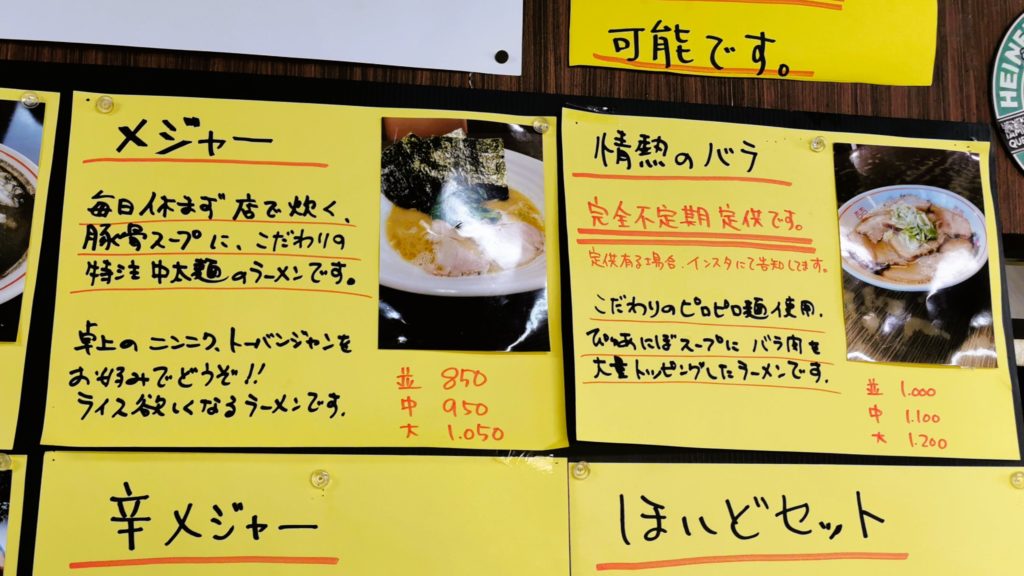 可能です。
HEINE
QU
メジャー
毎日休まず店で炊く、
豚骨スープに、こだわりの
特注中太麺のラーメンです。
卓上のニンニク、トーバンジャンを
お好みでどうぞ!!
ライス欲しくなるラーメンです。
並 850
中 950
大 1.050
情熱のバラ
完全不定期定供です。
定供有る場合、インスタにて告知してます。
こだわりのピロピロ麺使用、
ぴゅあにぼスープにバラ肉を
大量トッピングしたラーメンです。
並 1.000
中 1.100
大 1.200
辛メジャー
ほいどセット